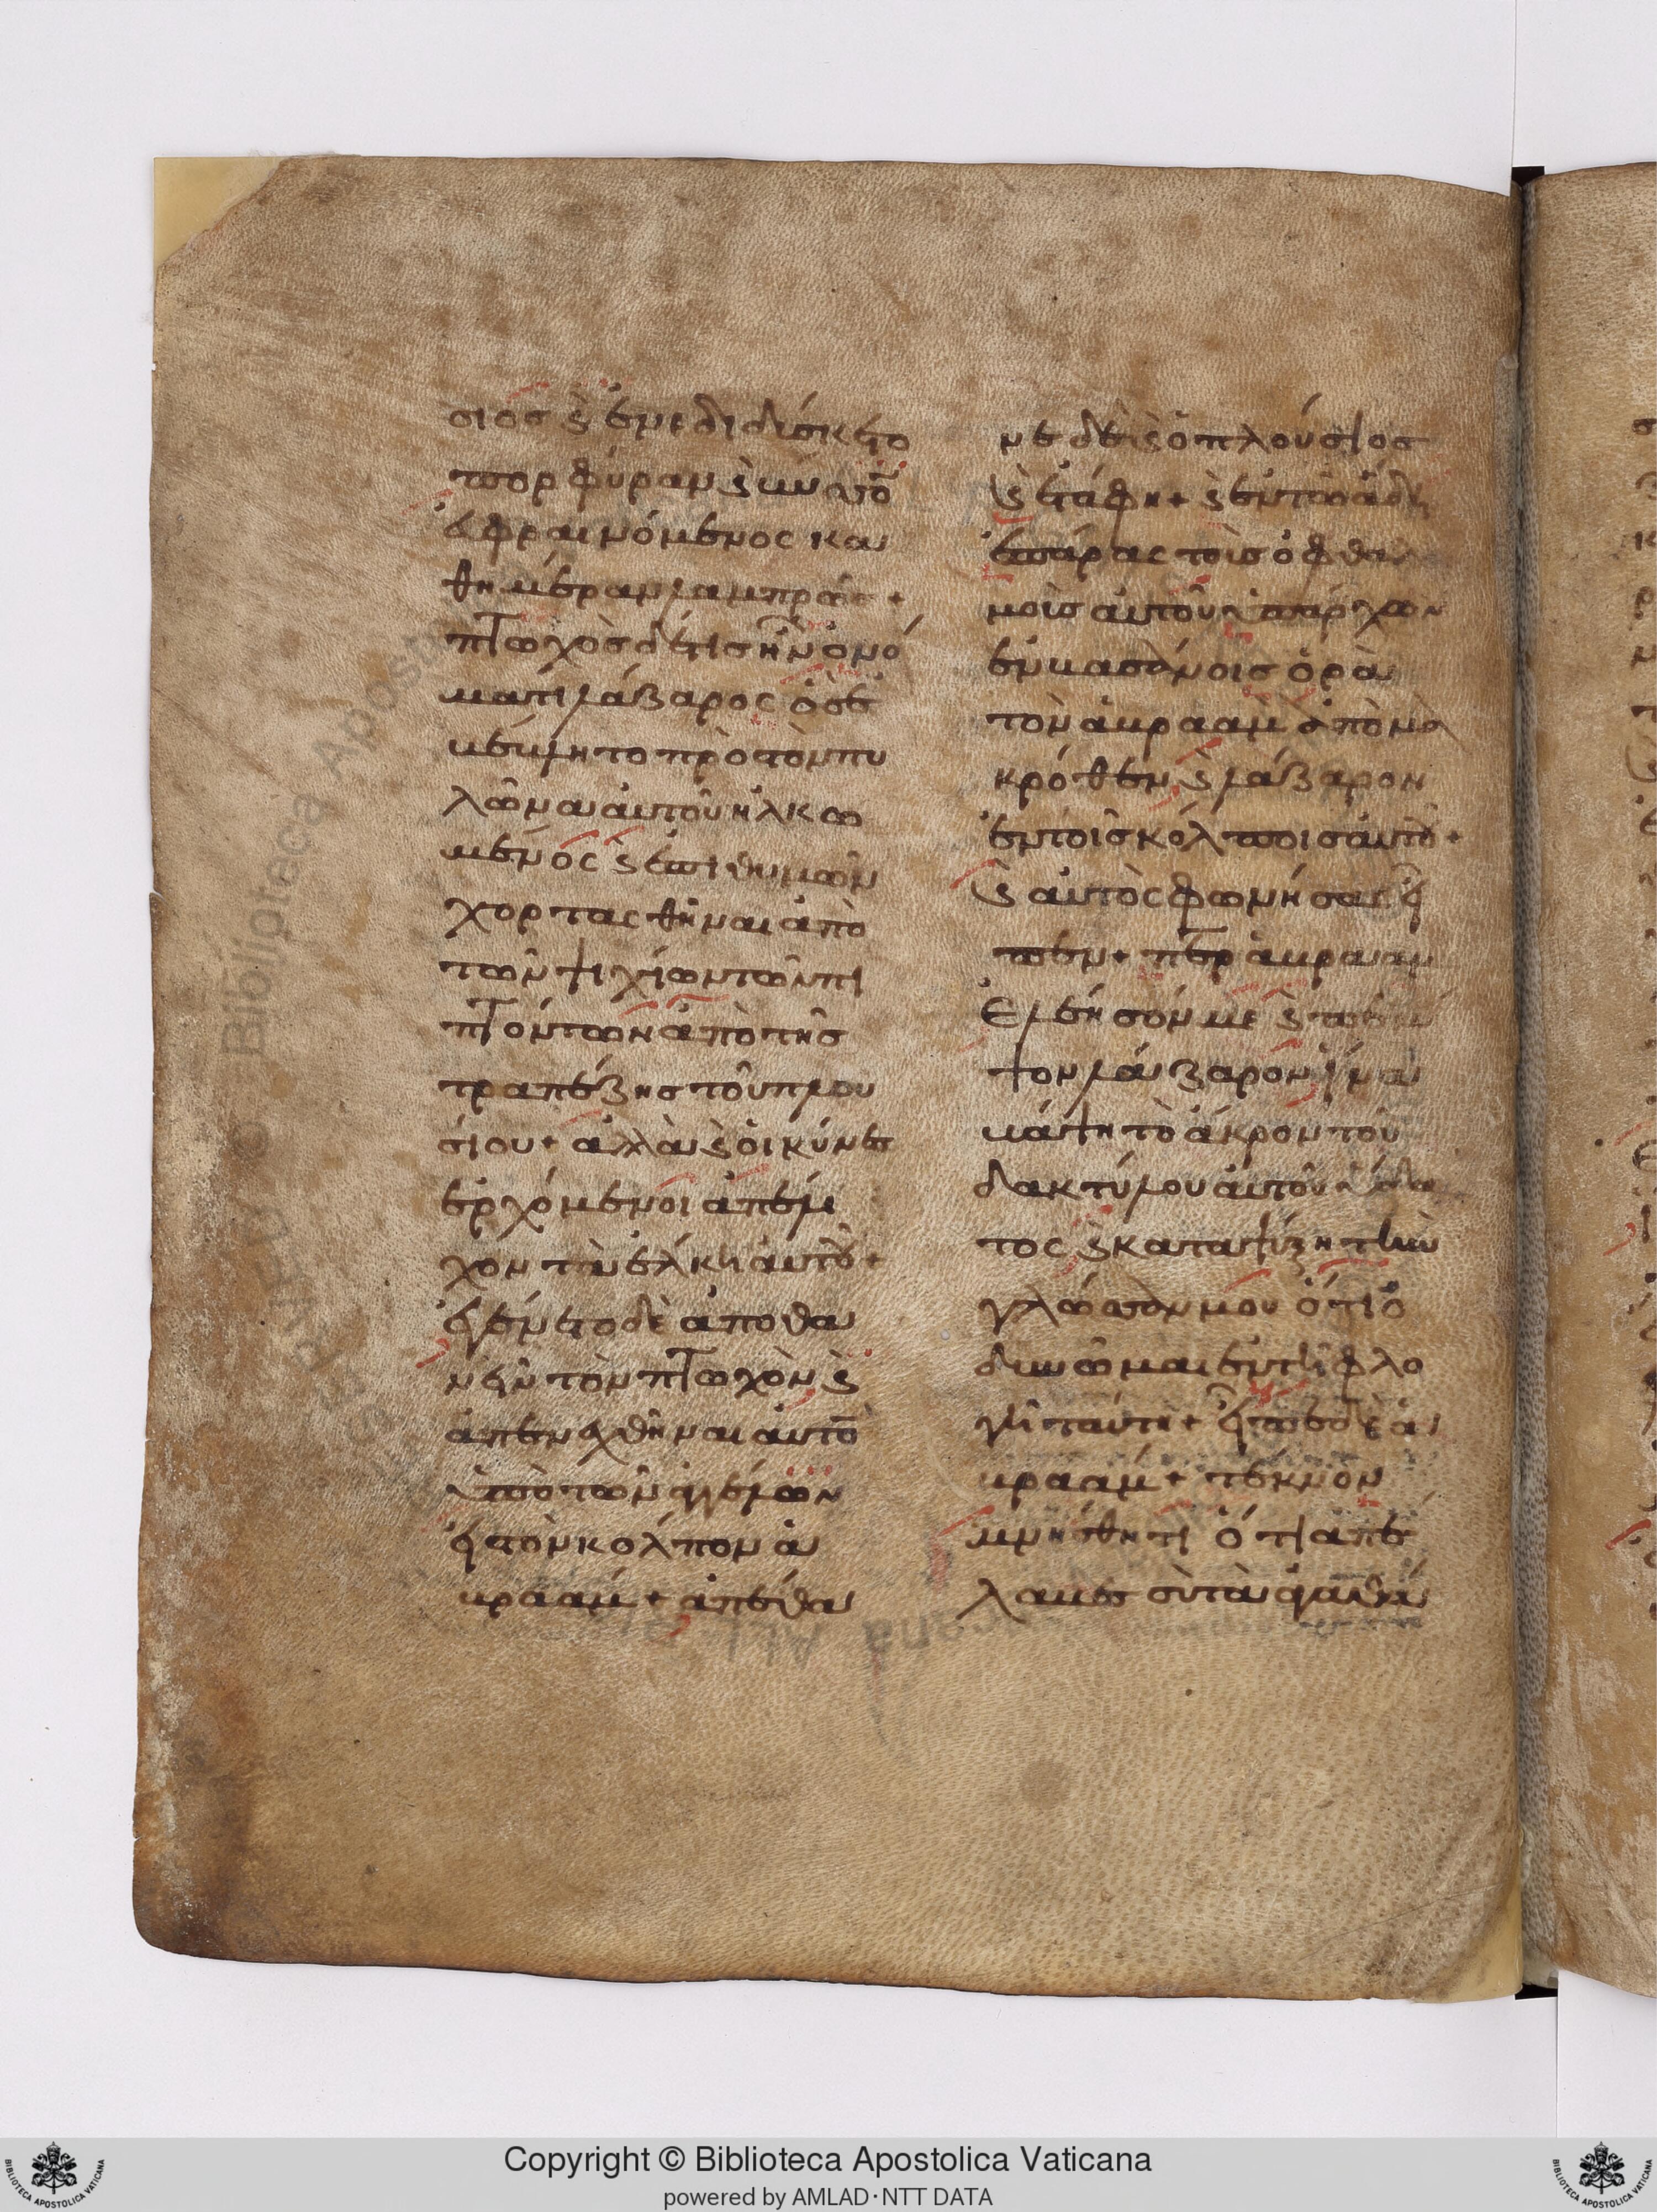 σιος ϗ ενεδιδύσκετο
πορφύραν ϗ βύσσον
ἐφραινόμενος κα
θημέραν λαμπρῶς +
πτωχὸς δέ τις ἦν ὀνό
ματι λάζαρος ὃς ἐ
βέβλητο πρὸς τὸν πυ
λῶνα αὐτοῦ ἡλκω
μένος ϗ ἐπιθυμῶν
χορτασθῆναι ἀπὸ
τῶν ψιχίων τῶν πι
πτόντων ἀπὸ τῆς
τραπέζης τοῦ πλου
σίου + ἀλλὰ ϗ οἱ κύνες
ἐρχόμενοι ἀπέλι
χον τὰ ἕλκη αὐτοῦ +
ἐγένετο δὲ ἀποθα
νεῖν τὸν πτωχὸν ϗ
ἀπενεχθῆναι αὐτὸν
ὑπὸ τῶν ἀγγέλων
εἰς τὸν κόλπον ἀ
βραάμ + ἀπέθα
νε δὲ ϗ ὁ πλούσιος
ϗ ἐτάφη + ϗ ἐν τῷ ἅδῃ
ἐπάρας τοὺς ὀφθαλ
μοὺς αὐτοῦ ὑπάρχων
ἐν βασάνοις ὁρᾶ
τὸν ἀβραὰμ ἀπὸ μα
κρόθεν ϗ λάζαρον
ἐν τοῖς κόλποις αὐτοῦ +
ϗ αὐτὸς φωνήσας εἶ
πεν + περ ἀβραὰμ
Ἐλέησόν με ϗ πέμ
ψον λάζαρον ἵνα
βάψη τὸ ἄκρον τοῦ
δακτύλου αὐτοῦ ὕδα
τος ϗ καταψύξη τὴν
γλῶσσάν μου ὅτι ὀ
δυνῶμαι ἐν τῆ φλο
γὶ ταύτη + εἶπε δὲ ἀ
βραάμ + τέκνον
μνήσθητι ὅτι ἀπέ
λαβες σὺ τὰ ἀγαθά